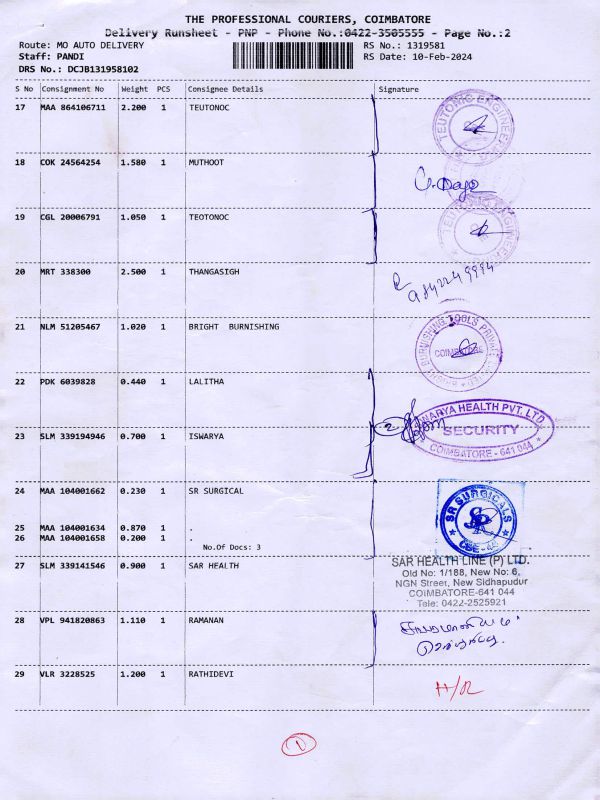 THE PROFESSIONAL COURIERS, COIMBATORE
Delivery Runsheet - PNP - Phone No.:0422-3505555 - Page No.:2
Route: MO AUTO DELIVERY RS No.: 1319581
Staff: PANDI RS Date: 10-Feb-2024
DRS No.: DCJB131958102
S No Consignment No Weight PCS Consignee Details Signature
17 MAA 864106711 2.200 1 TEUTONOC
TEUTONIC ENGINEER
18 COK 24564254 1.580 1 MUTHOOT
19 CGL 20006791 1.050 1 TEOTONOC
TEUTONIC ENGINEER
20 MRT 338300 2.500 1 THANGASIGH
9842249994
21 NLM 51205467 1.020 1 BRIGHT BURNISHING
BRIGHT BURNISHING TOOLS PRIVATE LIMITED
COIMBATORE
22 PDK 6039828 0.440 1 LALITHA
2
ISWARYA HEALTH PVT. LTD.
SECURITY
COIMBATORE - 641 044
23 SLM 339194946 0.700 1 ISWARYA
24 MAA 104001662 0.230 1 SR SURGICAL
SR SURGICALS
SR
CBE-45
25 MAA 104001634 0.870 1 .
26 MAA 104001658 0.200 1 .
No.Of Docs: 3
27 SLM 339141546 0.900 1 SAR HEALTH
SAR HEALTH LINE (P) LTD.
Old No: 1/188, New No: 6,
NGN Street, New Sidhapudur
COIMBATORE-641 044
Tele: 0422-2525921
28 VPL 941820863 1.110 1 RAMANAN
29 VLR 3228525 1.200 1 RATHIDEVI
H/R
1